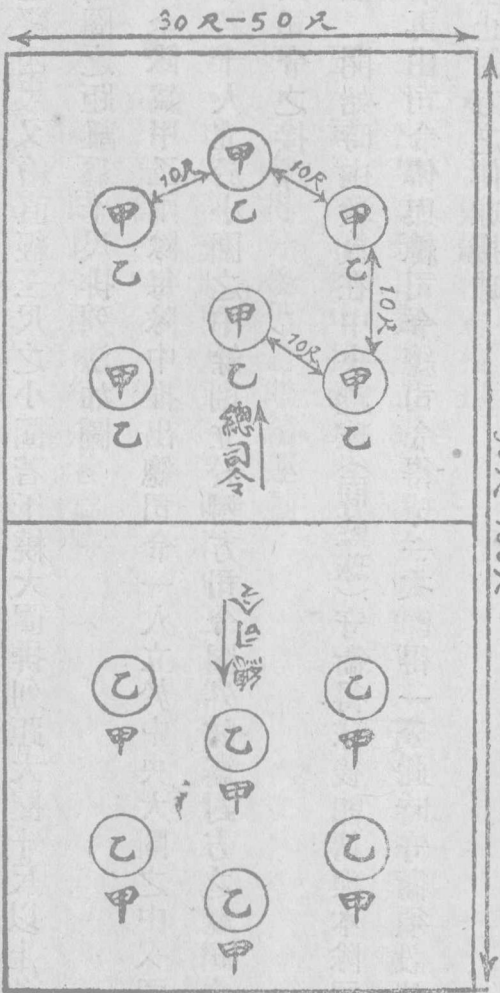 30尺-50尺
甲
乙
10尺
10尺
甲
乙
甲
乙
10尺
甲
乙
10尺
甲
乙
甲
乙
總司令
總司令
乙
甲
乙
甲
乙
甲
乙
甲
乙
甲
乙
甲